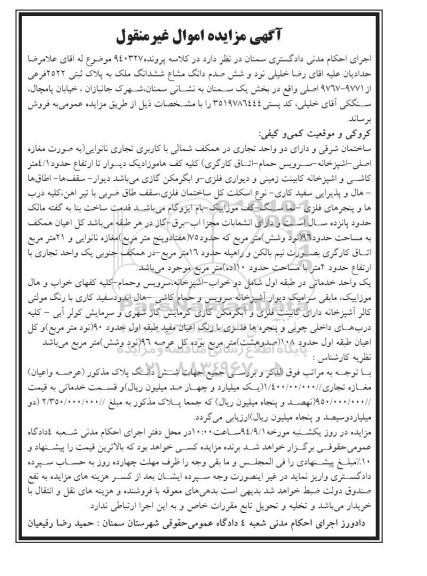 آگهی مزایده اموال غیرمنقول
اجرای احکام مدنی دادگستری سمنان در نظر دارد در کلاسه پرونده۹۴۰۳۲۷ موضوع له اقای غلامرضا
حدادیان علیه اقای رضا خلیلی نود و شش صدم دانگ مشاع ششدانگ ملک به پلاک ثبتی ۲۵۲۲فرعی
از۹۷۷۱-۹۷۶۷ اصلی واقع در بخش یک سمنان به نشانی سمنان،شهرک جانبازان ، خیابان پامچال،
سنگکی آقای خلیلی، کد پستی۳۵۱۹۷۸۶۴۴۴ را با مشخصات ذیل از طریق مزایده عمومی‌به فروش
برساند.
کروکی و موقعیت کمی‌و کیفی:
ساختمان شرقی و دارای دو واحد تجاری در همکف شمالی با کاربری تجاری نانوایی(به صورت مغازه
اصلی-آشپزخانه-سرویس حمام-اتاق کارگری) کلیه کف هاموزاییک دیوار تا ارتفاع حدود۱/۴متر
کاشی و اشپزخانه کابینت زمینی و دیواری فلزی-و ابگرمکن گازی می‌باشد دیوار- سقف‌ها- اطاق‌ها
- هال و پذیرایی سفید کاری- نوع اسکلت کل ساختمان فلزی،سقف طاق ضربی با تیر اهن،کلیه درب
ها و پنجرهای فلزی -نما سنگ-کف موزاییک-بام ایزوگام می‌باشد قدمت ساخت بنا به گفته مالک
حدود پانزده سال است و دارای انشعابات مجزا اب-برق-گاز در هر طبقه می‌باشد کل اعیان همکف
به مساحت حدود۹۶(نود وشش)متر مربع که حدود۷۵(هفتادوپنج متر مربع)مغازه نانوایی و ۲۱متر مربع
اتاق کارگری بصورت نیم بالکن و راهپله حدود ۱۶متر مربع-در همکف جنوبی یک واحد تجاری با
ارتفاع حدود ۲متر با مساحت حدود ۱۰(ده)متر مربع موجود می‌باشد.
یک واحد خدماتی در طبقه اول شامل دو خواب-آشپزخانه،سرویس وحمام-کلیه کفهای خواب و هال
موزاییک، مابقی سرامیک دیوار آشپزخانه سرویس و حمام کاشی -هال اندودسفید کاری با رنگ مولتی
کالر آشپزخانه دارای کابینت فلزی و آبگرمکن گازی گرمایش گاز شهری و سرمایش کولر آبی - کلیه
درب‌های داخلی چوبی و پنجره ها فلزی با رنگ اعیان مفید طبقه اول حدود ۹۰(نود متر مربع)و کل
اعیان طبقه اول حدود ۱۰۸(صدوهشت)متر مربع بوده کل عرصه ۹۶(نود وشش)متر مربع می‌باشد
نظریه کارشناس :
با توجه به مراتب فوق الذکر و بررسی جمیع جهات شش دانگ پلاک مذکور (عرصه واعیان)
مغازه تجاری//۱/۴۰۰/۰۰۰/۰۰۰(یک میلیارد و چهار صد میلیون ریال)و قسمت خدماتی به قیمت
//۹۵۰/۰۰۰/۰۰۰(نهصد و پنجاه میلیون ریال) که جمعا پلاک مذکور به مبلغ //۲/۳۵۰/۰۰۰/۰۰۰ (دو
میلیاردوسیصد و پنجاه میلیون ریال)ارزیابی می‌گردد.
مزایده در روز یکشنبه مورخه۹۴/۹/۱ساعت۱۰:۰۰در محل دفتر اجرای احکام مدنی شعبه ۴دادگاه
عمومی‌حقوقی برگزار خواهد شد برنده مزایده کسی خواهد بود که بالاترین قیمت را پیشنهاد و
۱۰٪مبلغ پیشنهادی را فی المجلس و ما بقی وجه را ظرف مهلت چهارده روز به حساب سپرده
دادگستری واریز نماید در غیر اینصورت وجه سپرده ایشان بعد از کسر هزینه های مزایده به نفع
صندوق دولت ضبط خواهد شد بدیهی است بدهی‌های معوقه با فروشنده و هزینه های نقل و انتقال با
خریدار می‌باشد و تخلیه و تحویل تابع مقررات خاص و به این اجرا ارتباطی ندارد.
دادورز اجرای احکام مدنی شعبه ۴ دادگاه عمومی‌حقوقی شهرستان سمنان : حمید رضا رفیعیان